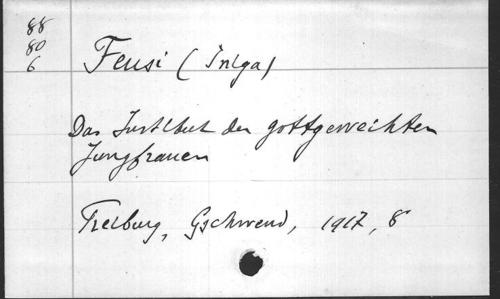 88
80
6
Feusi (Iniga)
Das Institut der gottgeweihten
Jungfrauen
Freiburg, Gschwend, 1917, 8°